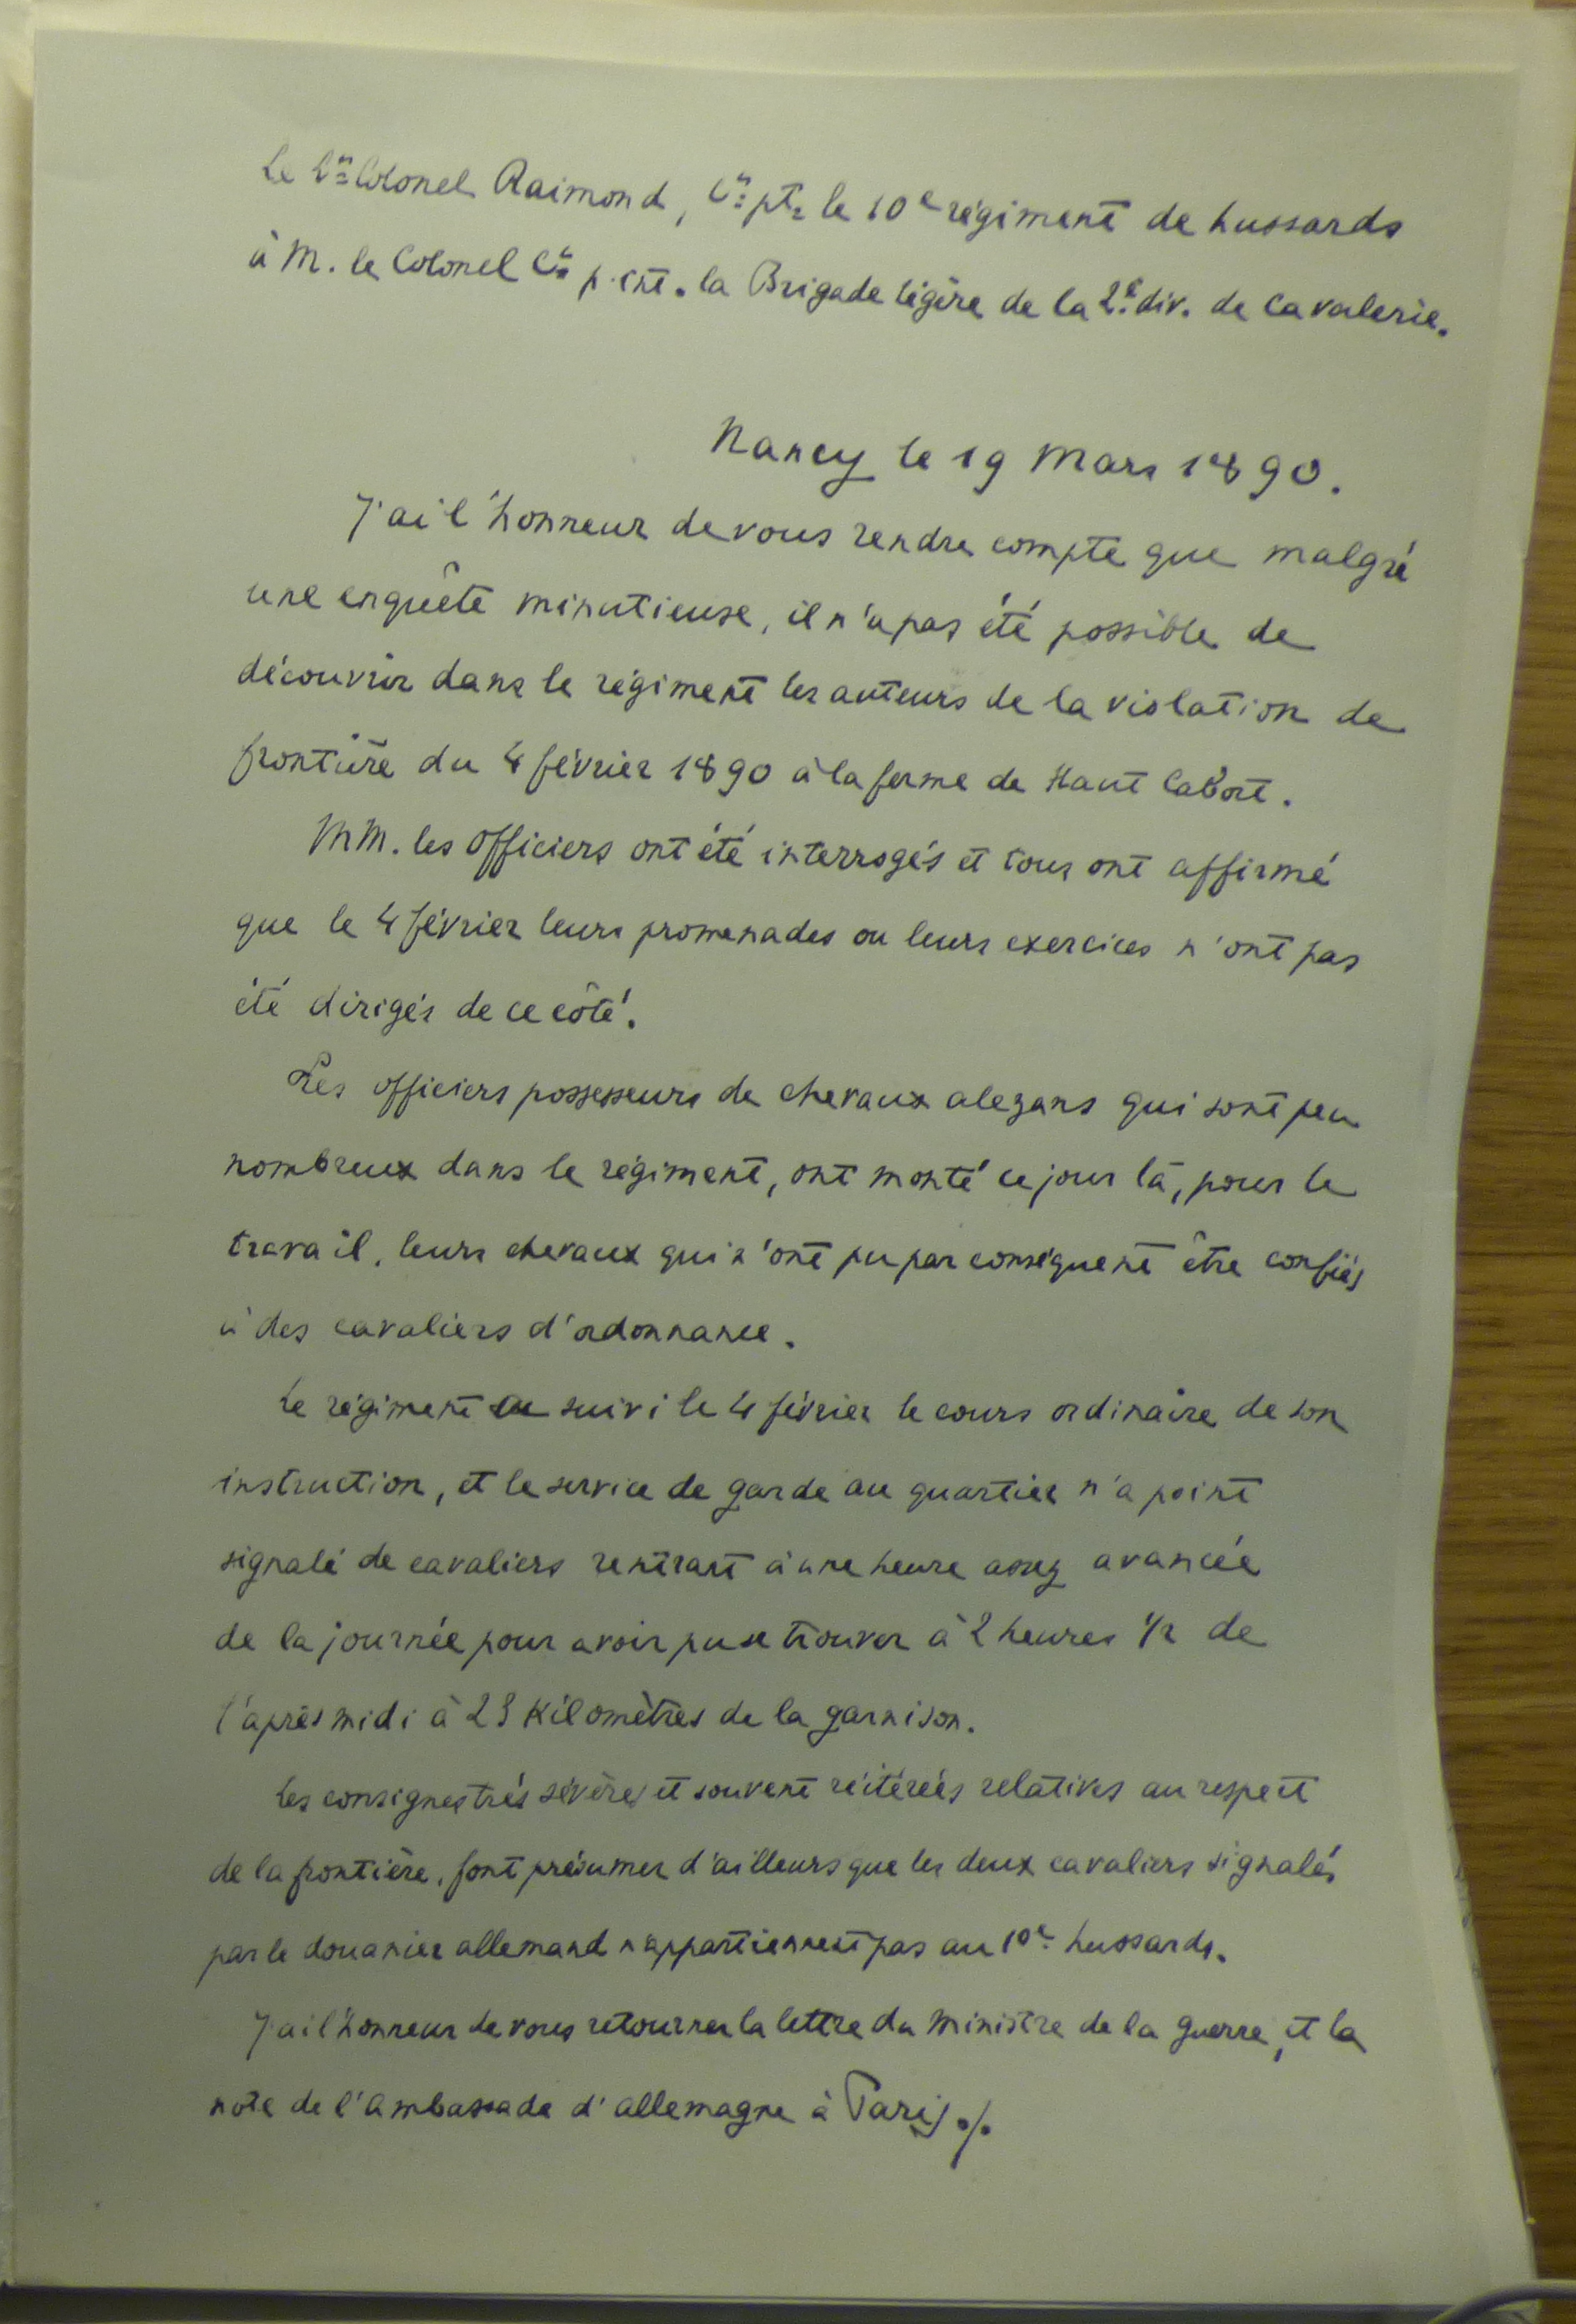 Le Ct Colonel Raimond, Ct pt le 10e régiment de hussards
à M. le Colonel Ct p. int. la Brigade légère de la 2e div. de Cavalerie.
Nancy le 19 Mars 1890.
J'ai l'honneur de vous rendre compte que malgré
une enquête minutieuse, il n'a pas été possible de
découvrir dans le régiment les auteurs de la violation de
frontière du 4 février 1890 à la ferme de Haut
MM. les officiers ont été interrogés et tous ont affirmé
que le 4 février leurs promenades ou leurs exercices n'ont pas
été dirigés de ce côté.
Les officiers possesseurs de chevaux alezans qui sont peu
nombreux dans le régiment, ont monté ce jour là, pour le
travail, leurs chevaux qui n'ont pu par conséquent être confiés
à des cavaliers d'ordonnance.
Le régiment a suivi le 4 février le cours ordinaire de son
instruction, et le service de garde au quartier n'a point
signalé de cavaliers rentrant à une heure assez avancée
de la journée pour avoir pu se trouver à 2 heures 1/2 de
l'après midi à 23 Kilomètres de la garnison.
Les consignes très sévères et souvent réitérées relatives au respect
de la frontière, font présumer d'ailleurs que les deux cavaliers signalés
par le douanier allemand n'appartiennent pas au 10e hussards.
J'ai l'honneur de vous retourner la lettre du Ministre de la guerre, et la
note de l'Ambassade d'Allemagne à Paris ./.